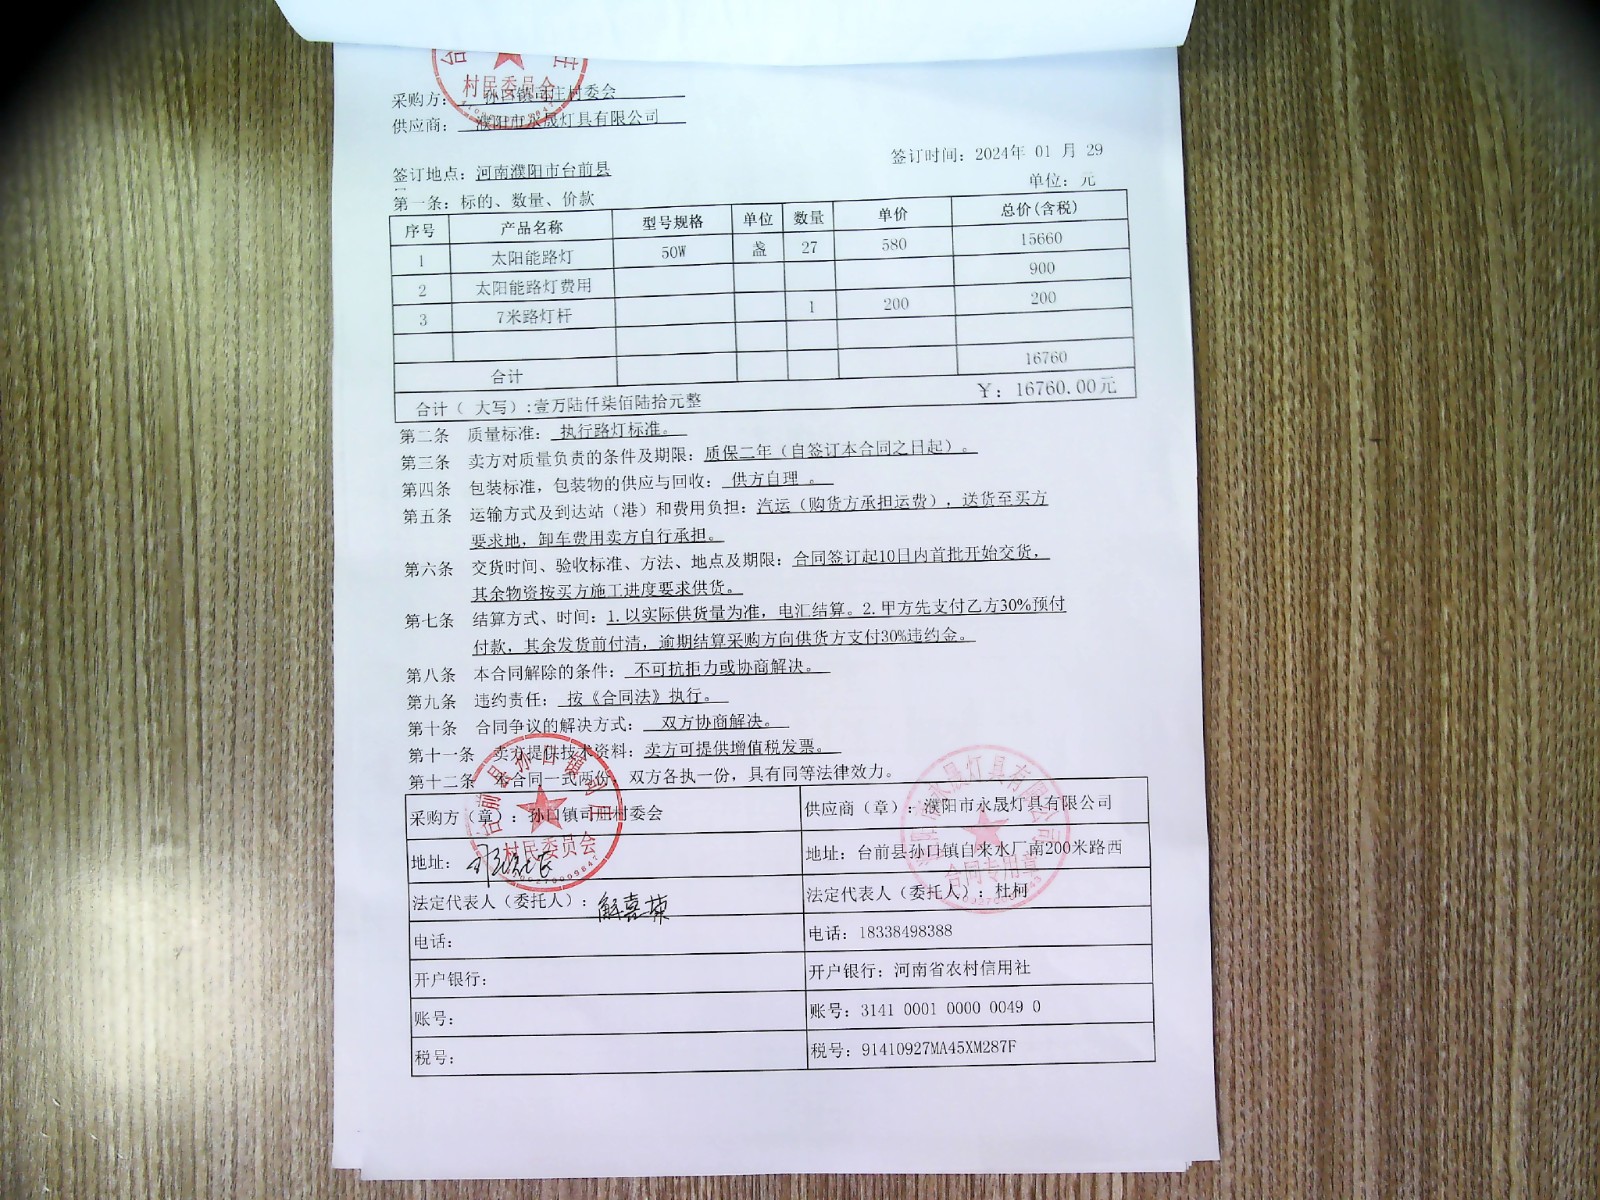 村民委员会
采购方：孙口镇司庄村委会
供应商：濮阳市永晟灯具有限公司
签订时间：2024年 01 月 29
签订地点：河南濮阳市台前县
单位：元
第一条：标的、数量、价款
序号 产品名称 型号规格 单位 数量 单价 总价(含税)
1 太阳能路灯 50W 盏 27 580 15660
2 太阳能路灯费用 900
3 7米路灯杆 1 200 200
合计 16760
合计（ 大写）:壹万陆仟柒佰陆拾元整 ￥：16760.00元
第二条 质量标准：执行路灯标准。
第三条 卖方对质量负责的条件及期限：质保二年（自签订本合同之日起）。
第四条 包装标准，包装物的供应与回收：供方自理 。
第五条 运输方式及到达站（港）和费用负担：汽运（购货方承担运费），送货至买方
要求地，卸车费用卖方自行承担。
第六条 交货时间、验收标准、方法、地点及期限：合同签订起10日内首批开始交货，
其余物资按买方施工进度要求供货。
第七条 结算方式、时间：1.以实际供货量为准，电汇结算。2.甲方先支付乙方30%预付
付款，其余发货前付清，逾期结算采购方向供货方支付30%违约金。
第八条 本合同解除的条件：不可抗拒力或协商解决。
第九条 违约责任：按《合同法》执行。
第十条 合同争议的解决方式：双方协商解决。
第十一条 卖方提供技术资料：卖方可提供增值税发票。
第十二条 本合同一式两份，双方各执一份，具有同等法律效力。
采购方（章）：孙口镇司庄村委会 供应商（章）：濮阳市永晟灯具有限公司
地址： 地址：台前县孙口镇自来水厂南200米路西
法定代表人（委托人）：解喜荣 法定代表人（委托人）：杜柯
电话： 电话：18338498388
开户银行： 开户银行：河南省农村信用社
账号： 账号：3141 0001 0000 0049 0
税号： 税号：91410927MA45XM287F
村民委员会
合同专用章